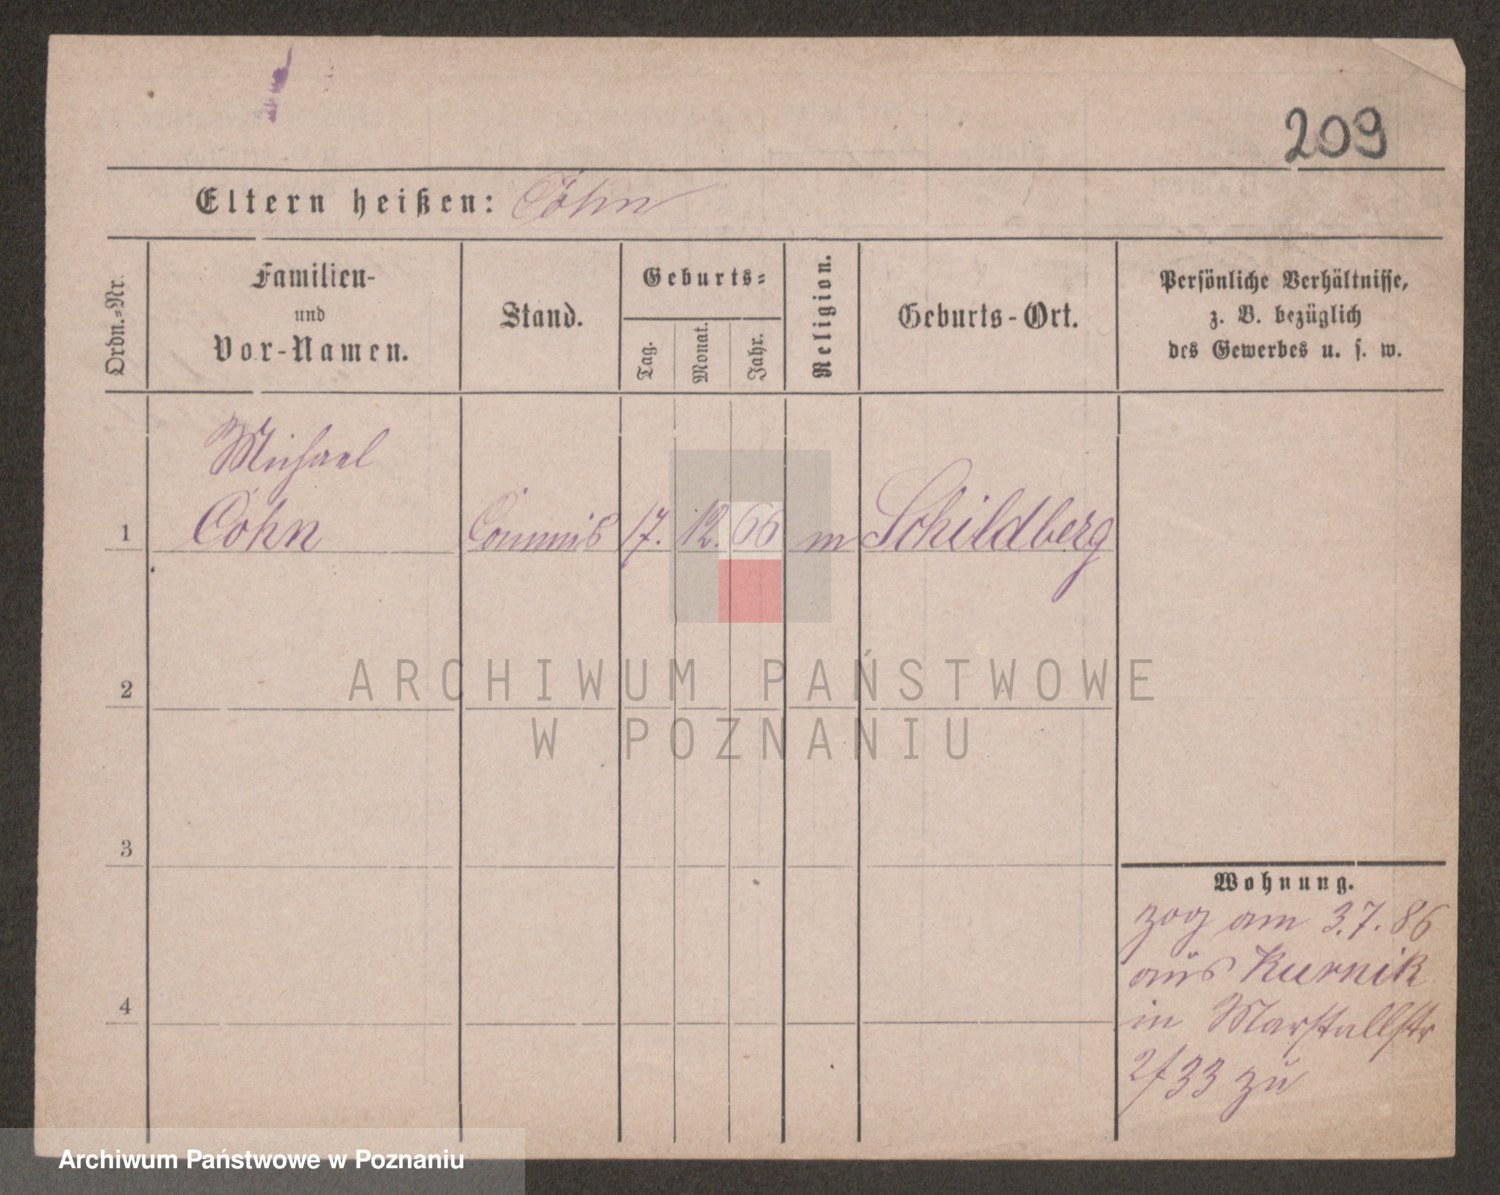 209
Eltern heißen: Cohn
Ordn.-Nr.
Familien-
und
Vor-Namen.
Stand.
Geburts-
Tag.
Monat.
Jahr.
Religion.
Geburts-Ort.
Persönliche Verhältnisse,
z. B. bezüglich
des Gewerbes u. s. w.
Michael
1 Cohn Commis 17. 12. 66 m Schildberg
2
3
4
Wohnung.
zog am 3.7.86
aus Kurnik
in Marstallstr
2/33 zu
ARCHIWUM PAŃSTWOWE
W POZNANIU
Archiwum Państwowe w Poznaniu